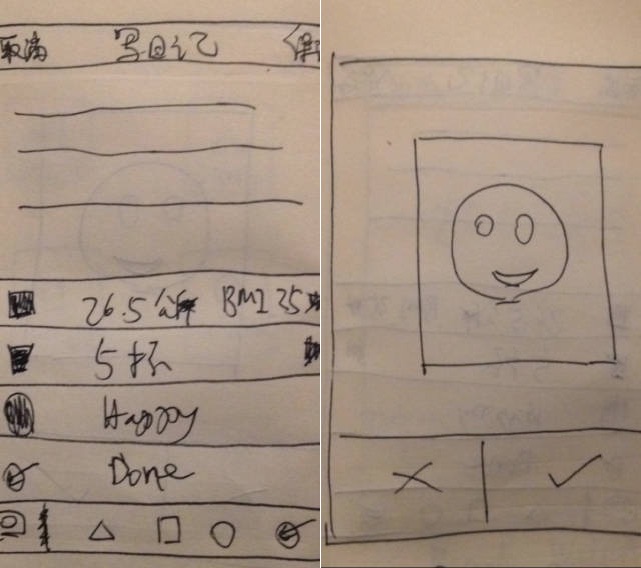 取消 写日记
26.5公斤 BMI 25
5杯
Happy
Done